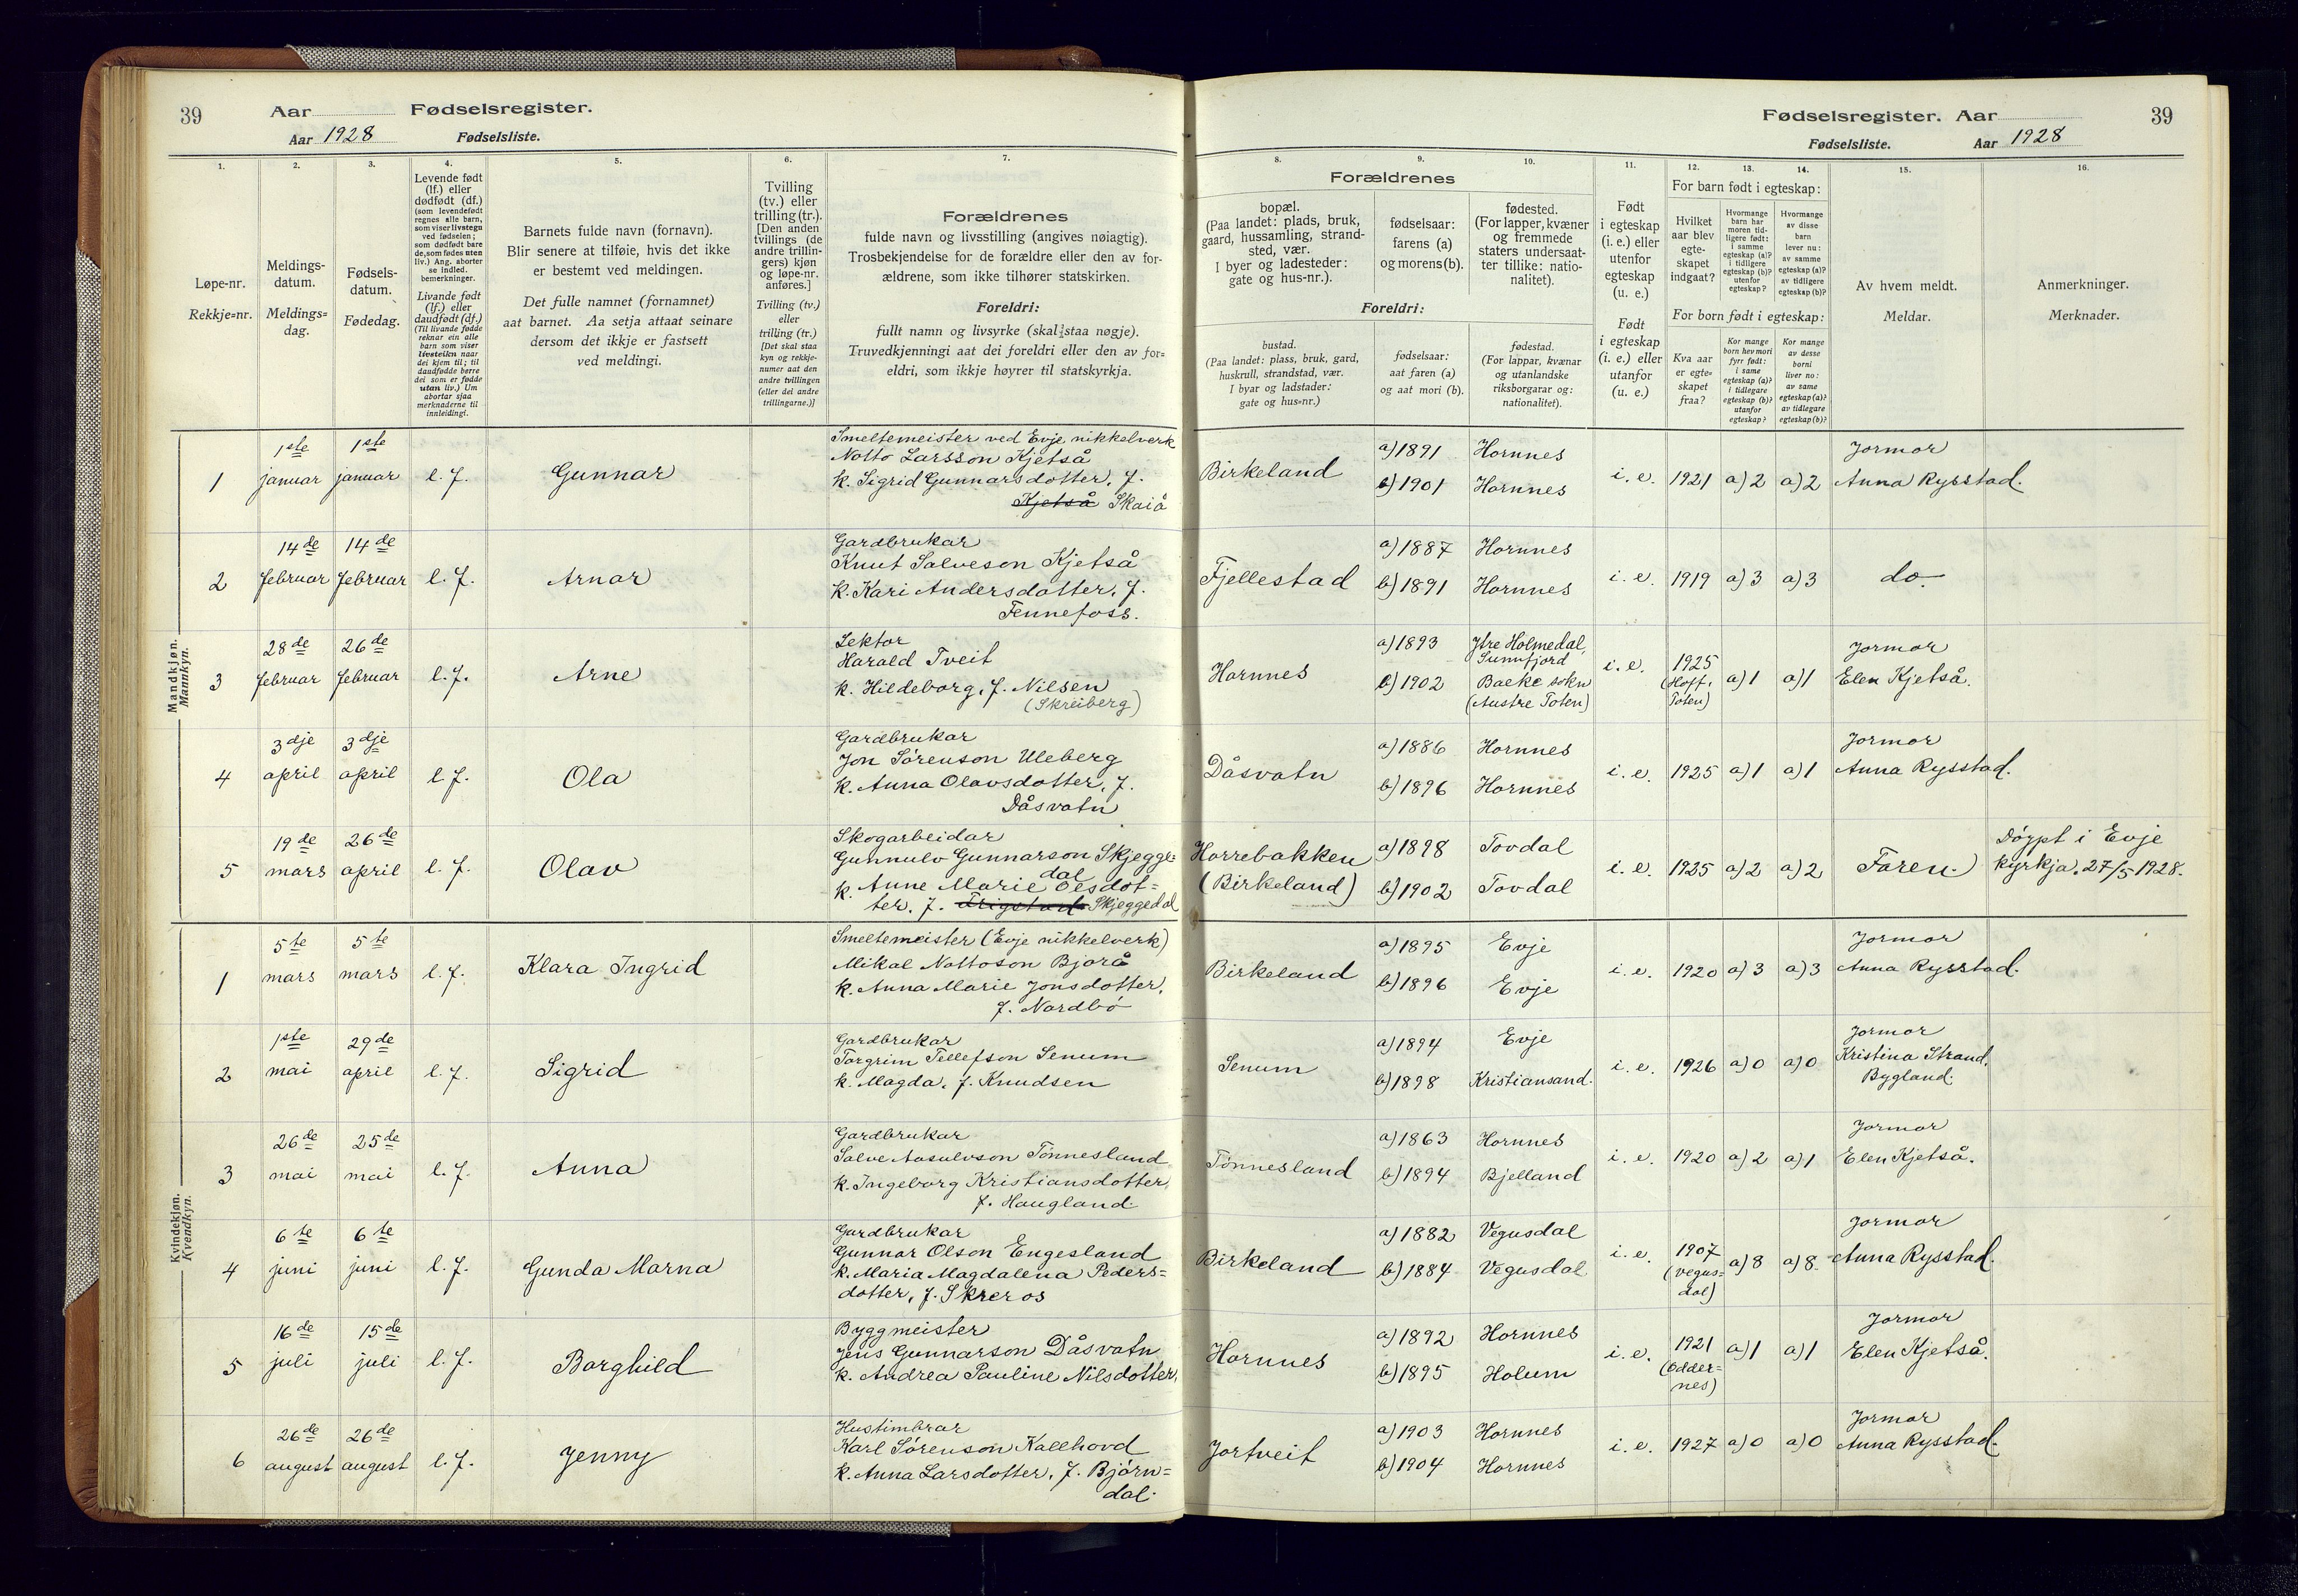 39 Aar Fødselsregister.
Aar 1928 Fødselsliste.
Fødselsregister. Aar 39
Fødselsliste. Aar 1928
1. 2. 3. 4. 5. 6. 7. 8. 9. 10. 11. 12. 13. 14. 15. 16.
Løpe-nr.
Rekkje=nr.
Meldings-
datum.
Meldings=
dag.
Fødsels-
datum.
Fødedag.
Levende født
(lf.) eller
dødfødt (df.)
(som levendefødt
regnes alle barn,
som viser livstegn
ved fødselen;
som dødfødt bare
de, som fødes uten
liv.) Ang. aborter
se indled.
bemerkninger.
Livande født
(lf.) eller
daudfødt (df.)
(Til livande fødde
reknar ein alle
barn som viser
livsteikn naar
dei kjem til; til
daudfødde berre
dei som er fødde
utan liv.) Um
abortar sjaa
merknaderne til
innleidingi.
Barnets fulde navn (fornavn).
Blir senere at tilføie, hvis det ikke
er bestemt ved meldingen.
Det fulle namnet (fornamnet)
aat barnet. Aa setja attaat seinare
dersom det ikkje er fastsett
ved meldingi.
Tvilling
(tv.) eller
trilling (tr.).
[Den anden
tvillings (de
andre trillin-
gers) kjøn
og løpe-nr.
anføres.]
Tvilling (tv.)
eller
trilling (tr.)
[Det skal staa
kyn og rekkje-
numer aat den
andre tvillingen
(eller dei andre
trillingarne.)]
Forældrenes
fulde navn og livsstilling (angives nøiagtig).
Trosbekjendelse for de forældre eller den av for-
ældrene, som ikke tilhører statskirken.
Foreldri:
fullt namn og livsyrke (skal staa nøgje).
Truvedkjenningi aat dei foreldri eller den av for=
eldri, som ikkje høyrer til statskyrkja.
Forældrenes
bopæl.
(Paa landet: plads, bruk,
gaard, hussamling, strand-
sted, vær.
I byer og ladesteder:
gate og hus-nr.).
fødselsaar:
farens (a)
og morens (b).
fødested.
(For lapper, kvæner
og fremmede
staters undersaat-
ter tillike: natio-
nalitet).
Foreldri:
bustad.
(Paa landet: plass, bruk, gard,
huskrull, strandstad, vær.
I byar og ladstader:
gate og hus=nr.)
fødselsaar:
aat faren (a)
og aat mori (b).
fødestad.
(For lappar, kvænar
og utanlandske
riksborgarar og:
nationalitet).
Født
i egteskap
(i. e.) eller
utenfor
egteskap
(u. e.)
Født
i egteskap
(i. e.) eller
utanfor
(u. e.)
For barn født i egteskap:
Hvilket
aar blev
egte-
skapet
indgaat?
Hvormange
barn har
moren tid-
ligere født:
i samme
egteskap (a)?
i tidligere
egteskap (b)?
utenfor
egteskap?
Hvormange
av disse
barn
lever nu:
av samme
egteskap (a)?
av tidligere
egteskap (b)?
For born født i egteskap:
Kva aar
er egte=
skapet
fraa?
Kor mange
born hev mori
fyrr født:
i same
egteskap (a)?
i tidlegare
egteskap (b)?
utanfor
egteskap?
Kor mange
av desse
borni
liver no:
av same
egteskap (a)?
av tidlegare
egteskap (b)?
Av hvem meldt.
Meldar.
Anmerkninger.
Merknader.
Mandkjøn.
Mannkyn.
1 1ste januar 1ste januar l. f. Gunnar
Smeltemeister ved Evje nikkelverk
Notto Larsson Kjetså
k. Sigrid Gunnarsdotter, f.
Kjetså Skaiå
Birkeland a) 1891 Hornnes
b) 1901 Hornnes
i. e. 1921 a) 2 a) 2 Jormor
Anna Rysstad.
2 14de februar 14de februar l. f. Arnar
Gardbrukar
Knut Salveson Kjetså
k. Kari Andersdotter, f.
Fennefoss.
Fjellestad a) 1887 Hornnes
b) 1891 Hornnes
i. e. 1919 a) 3 a) 3 do.
3 28de februar 26de februar l. f. Arne
Lektor
Harald Tveit
k. Hildeborg, f. Nilsen
(Skreiberg)
Hornnes a) 1893 Ytre Holmedal,
Sunnfjord
b) 1902 Baeke sokn
(Austre Toten)
i. e. 1925
(Hoff,
Toten)
a) 1 a) 1 Jormor
Elen Kjetså.
4 3dje april 3dje april l. f. Ola
Gardbrukar
Jon Sørenson Uleberg
k. Anna Olavsdotter, f.
Dåsvatn
Dåsvatn a) 1886 Hornnes
b) 1896 Hornnes
i. e. 1925 a) 1 a) 1 Jormor
Anna Rysstad.
5 19de mars 26de april l. f. Olav
Skogarbeidar
Gunnulv Gunnarson Skjegge=
dal
k. Anne Marie Olsdot=
ter, f. Skjeggedal
Horrebakken
(Birkeland)
a) 1898 Tovdal
b) 1902 Tovdal
i. e. 1925 a) 2 a) 2 Faren.
Døypt i Evje
kyrkja. 27/5 1928.
Kvindekjøn.
Kvendkyn.
1 5te mars 5te mars l. f. Klara Ingrid
Smeltemeister (Evje nikkelverk)
Mikal Nottoson Bjorå
k. Anna Marie Jonsdotter,
f. Nordbø
Birkeland a) 1895 Evje
b) 1896 Evje
i. e. 1920 a) 3 a) 3 Jormor
Anna Rysstad.
2 1ste mai 29de april l. f. Sigrid
Gardbrukar
Torgrim Tellefson Senum
k. Magda, f. Knudsen
Senum a) 1894 Evje
b) 1898 Kristiansand.
i. e. 1926 a) 0 a) 0 Jormor
Kristina Strand,
Bygland.
3 26de mai 25de mai l. f. Anna
Gardbrukar
Salve Aasulvson Tønnesland
k. Ingeborg Kristiansdotter,
f. Haugland.
Tønnesland a) 1863 Hornnes
b) 1894 Bjelland
i. e. 1920 a) 2 a) 1 Jormor
Elen Kjetså.
4 6te juni 6te juni l. f. Gunda Marna
Gardbrukar
Gunnar Olson Engesland
k. Maria Magdalena Peders=
dotter, f. Skreros
Birkeland a) 1882 Vegusdal
b) 1884 Vegusdal
i. e. 1907
(Vegus=
dal)
a) 8 a) 8. Jormor
Anna Rysstad.
5 16de juli 15de juli l. f. Borghild
Byggmeister
Jens Gunnarson Dåsvatn
k. Andrea Pauline Nilsdotter,
Hornnes a) 1892 Hornnes
b) 1895 Holum
i. e. 1921
(Odder=
nes)
a) 1 a) 1 Jormor
Elen Kjetså.
6 26de august 26de august l. f. Jenny
Hustimbrar
Karl Sørenson Kallhovd
k. Anna Larsdotter, f. Bjørn=
dal.
Jortveit a) 1903 Hornnes
b) 1904 Hornnes
i. e. 1927 a) 0 a) 0 Jormor
Anna Rysstad.